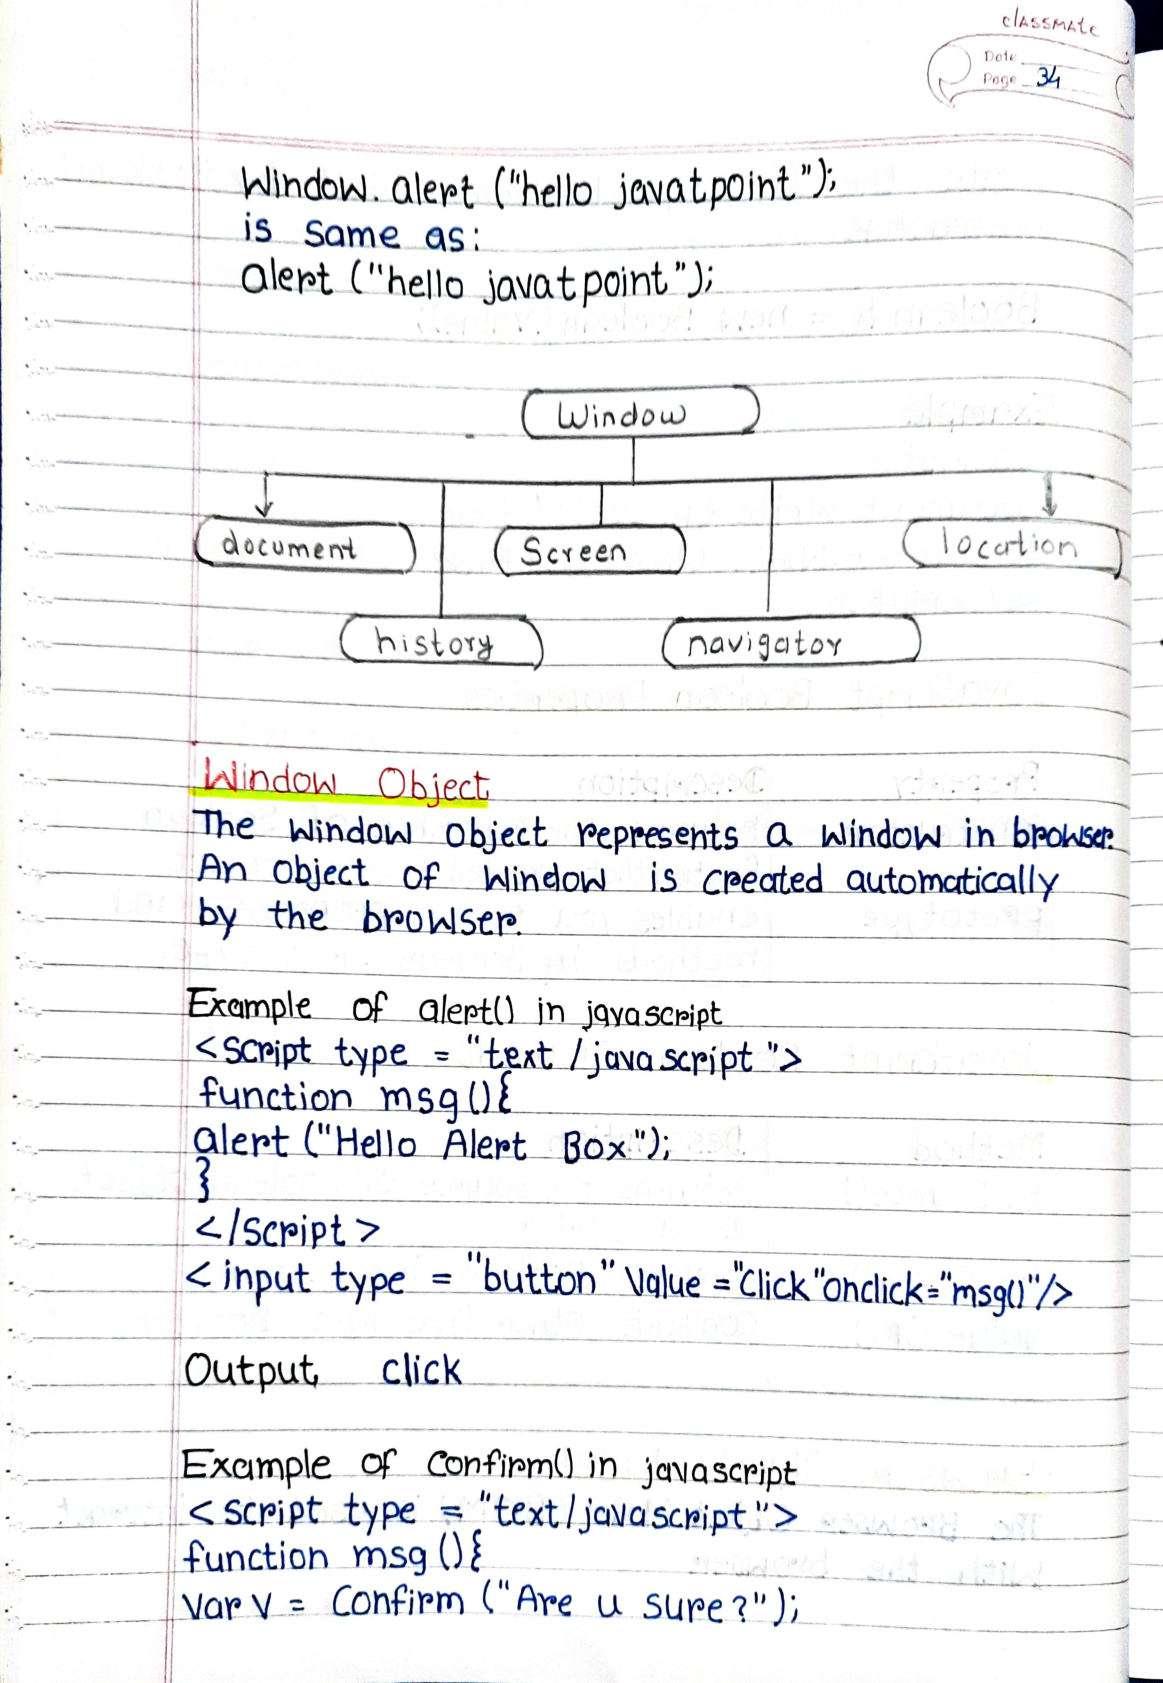 classmate
Date
Page 34
Window.alert ("hello javatpoint");
is same as:
alert ("hello javatpoint");
Window
document
Screen
location
history
navigator
Window Object
The window object represents a window in browser.
An object of window is created automatically
by the browser.
Example of alert() in javascript
<script type = "text/javascript">
function msg(){
alert ("Hello Alert Box");
}
</script>
<input type = "button" value ="click"onclick="msg()"/>
Output, click
Example of confirm() in javascript
<script type = "text/javascript">
function msg(){
var v = confirm ("Are u sure?");